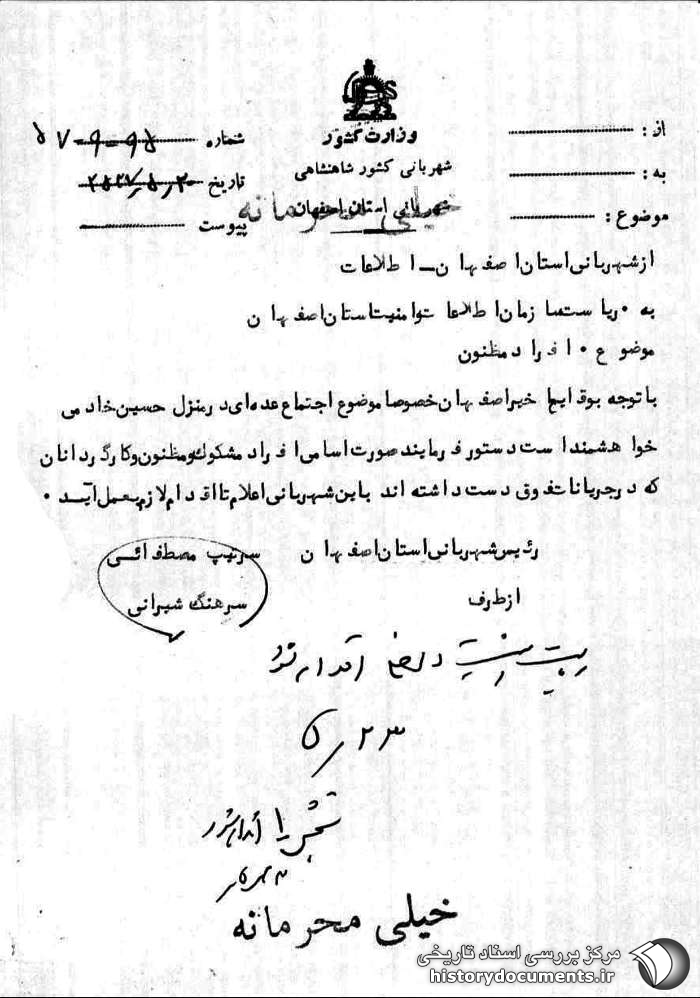 وزارت کشور
شهربانی کشور شاهنشاهی
شهربانی استان اصفهان
از :
به :
موضوع :
شماره ۵۷-۹-۹۵
تاریخ ۲۵۳۷/۵/۲۰
پیوست
خیلی محرمانه
از شهربانی استان اصفهان – اطلاعات
به ۰ ریاست سازمان اطلاعات و امنیت استان اصفهان
موضوع ۰ افراد مظنون
با توجه بوقایع اخیر اصفهان خصوصا موضوع اجتماع عده‌ای در منزل حسین خادمی
خواهشمند است دستور فرمایند صورت اسامی افراد مشکوک و مظنون و کارگردانان
که در جریانات فوق دست داشته اند باین شهربانی اعلام تا اقدام لازم بعمل آید ۰
رئیس شهربانی استان اصفهان سرتیپ مصطفائی
از طرف سرهنگ شیرانی
اقدام شود
۲۳/۵
بخش ۱ اقدام شود
خیلی محرمانه
مرکز بررسی اسناد تاریخی
historydocuments.ir